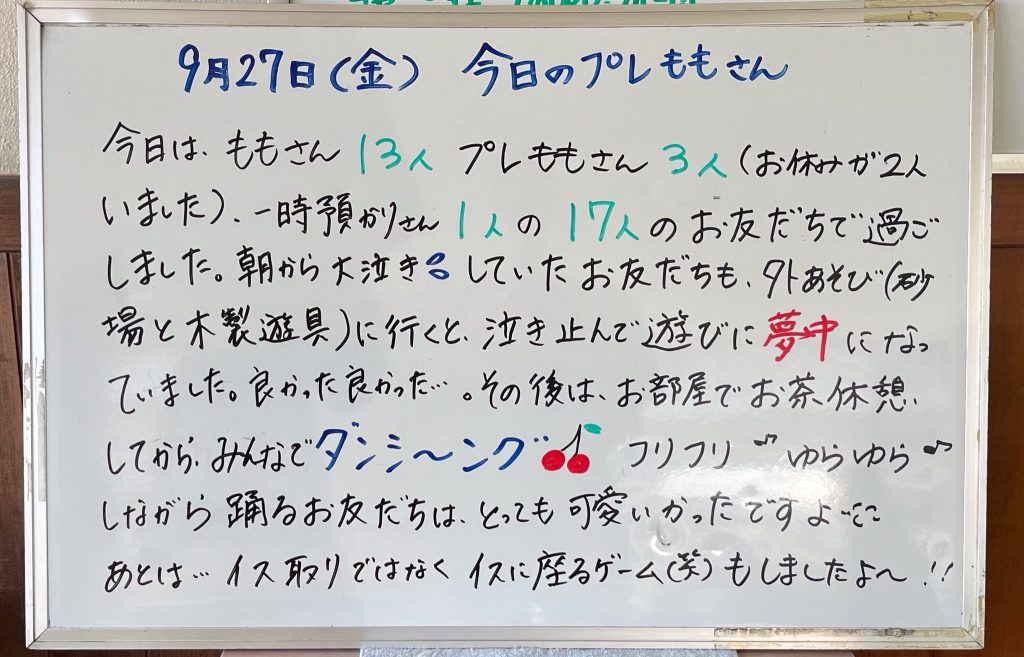 9月27日(金) 今日のプレももさん
今日は、ももさん 13人 プレももさん 3人(お休みが2人
いました)、一時預かりさん 1人の 17人のお友だちで過ご
しました。朝から大泣きしていたお友だちも、外あそび(砂
場と木製遊具)に行くと、泣き止んで遊びに夢中になっ
ていました。良かった良かった…。その後は、お部屋でお茶休憩
してから、みんなでダンシ〜ング フリフリ♪ ゆらゆら♪
しながら踊るお友だちは、とっても可愛いかったですよ
あとは… イス取りではなく イスに座るゲーム(笑)もしましたよ〜!!